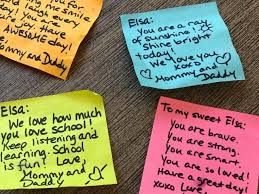 me smile
joy. Have
AWESOME day!
and Daddy
Elsa:
You are a ray
of sunshine!
Shine bright
today!
We love you
xoxo
Mommy and
Daddy
Elsa:
We love how much
you love school!
Keep listening and
learning. School
is fun! Love,
Mommy and
Daddy
To my sweet Elsa:
You are brave.
You are strong.
You are smart.
You are so loved!
Have a great day!
XOXO Love,